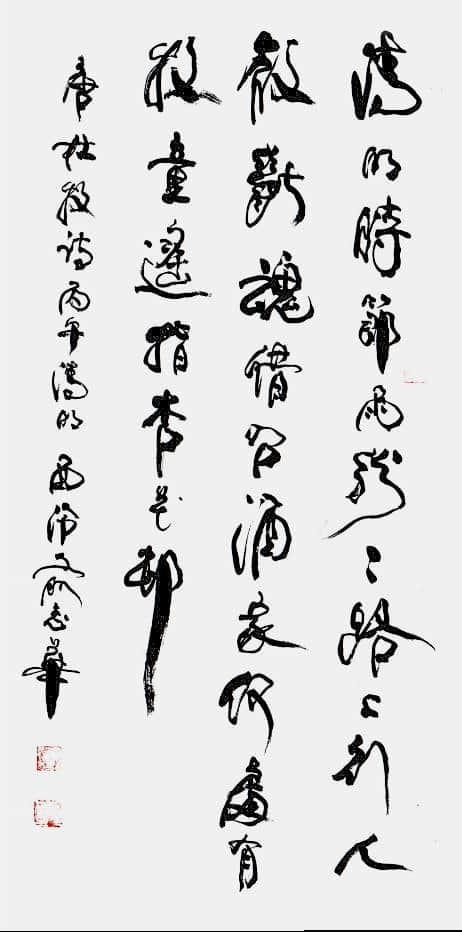 清明時節雨紛〻路上行人
欲斷魂借問酒家何處有
牧童遙指杏花邨
唐杜牧詩丙午清明西泠志華